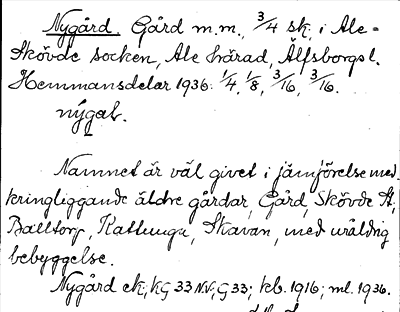 Nygård. Gård m.m., 3/4 sk. i Ale-
Skövde socken, Ale härad, Älfsborgs l.
Hemmansdelar 1936: 1/4, 1/8, 3/16, 3/16.
nýgab.
Namnet är väl givet i jämförelse med
kringliggande äldre gårdar, Gård, Skövde St,
Balltorp, Kattunga, Skavan, med uråldrig
bebyggelse.
Nygård ek; kG 33 N.V; G 33; kb. 1916; ml. 1936.